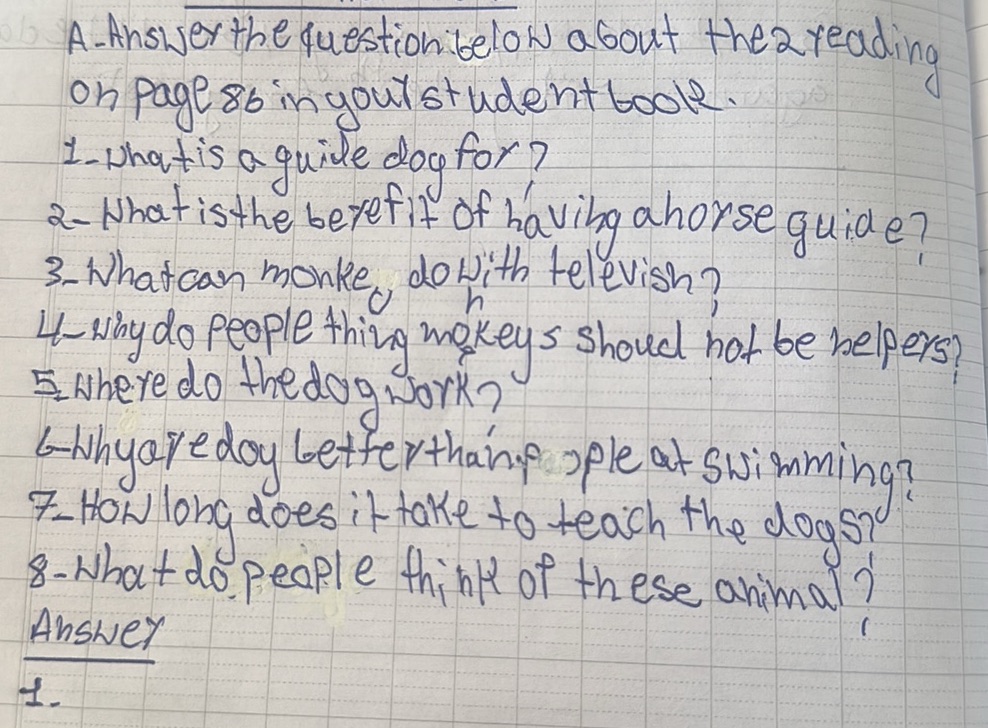 A-Answer the question below about the 2 reading
on page 86 in your student book.
1-What is a guide dog for?
2-What is the berefit of having a horse guide?
3-What can monkey do with televish?
4-why do people thing monkeys shoud not be helpers?
5. Where do the dog work?
6-Why are doy better than people at swimming?
7-How long does it take to teach the dogs?
8-What do people think of these animal?
Answer
1.